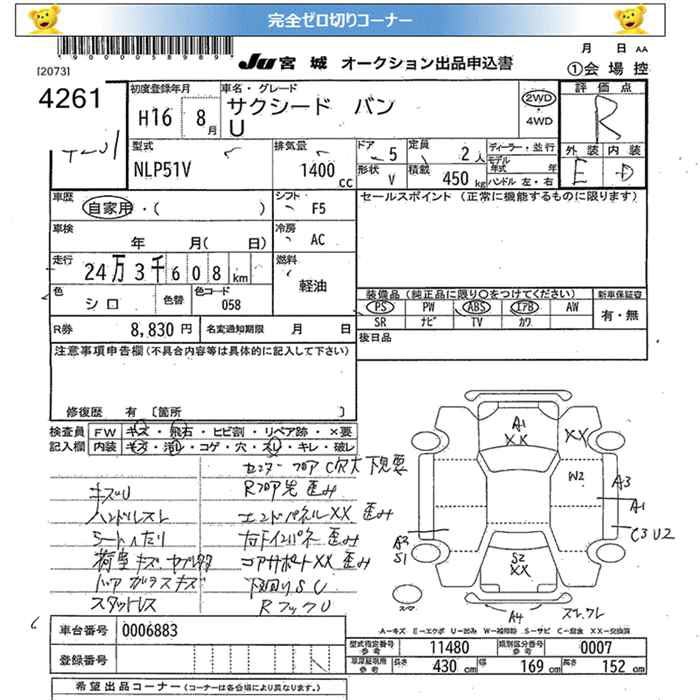 完全ゼロ切りコーナー
*9000058989*
[2073]
JU 宮城 オークション出品申込書
月 日 AA
①会場控
4261
初度登録年月
H16 8月
車名・グレード
サクシード バン
U
2WD
・
4WD
評価点
R
外装 内装
E D
型式
NLP51V
排気量
1400cc
ドア 5
形状 V
定員 2人
積載 450kg
ディーラー・並行
モデル年式 年
ハンドル 左・右
車歴
自家用・( )
シフト F5
セールスポイント (正常に機能するものに限ります)
車検
年 月( 日)
冷房 AC
走行
24万3千608km
燃料
軽油
色
シロ
色替
色コード
058
装備品(純正品に限り○をつけてください)
新車保証書
PS PW ABS エアB AW
有・無
SR ナビ TV カワ
R券 8,830円
名変通知期限 月 日
後日品
注意事項申告欄(不具合内容等は具体的に記入して下さい)
修復歴 有 [箇所 ]
検査員 FW キズ・飛石・ヒビ割・リペア跡・×要
記入欄 内装 キズ・汚れ・コゲ・穴・スリ・キレ・破レ
センターフロアC穴大下見要
キズU
Rフロア先歪み
ハンドルスレ
エンドパネルXX歪み
シートへたり
右ドインパネ歪み
コアサポートXX歪み
ドアガラスキズ
下回りSU
スタッドレス
RフックU
A1
XX
XX
W2
A3
A1
C3U2
A2
S1
S2
XX
A4
スレ,ワレ
スペア
A-キズ E-エクボ U-凹み W-補修跡 S-サビ C-腐食 XX-交換済
車台番号 0006883
登録番号
型式指定番号 参考 11480
類別区分番号 参考 0007
車庫証明用 参考 長さ 430cm 幅 169cm 高さ 152cm
希望出品コーナー(コーナーは各会場により異なります。)